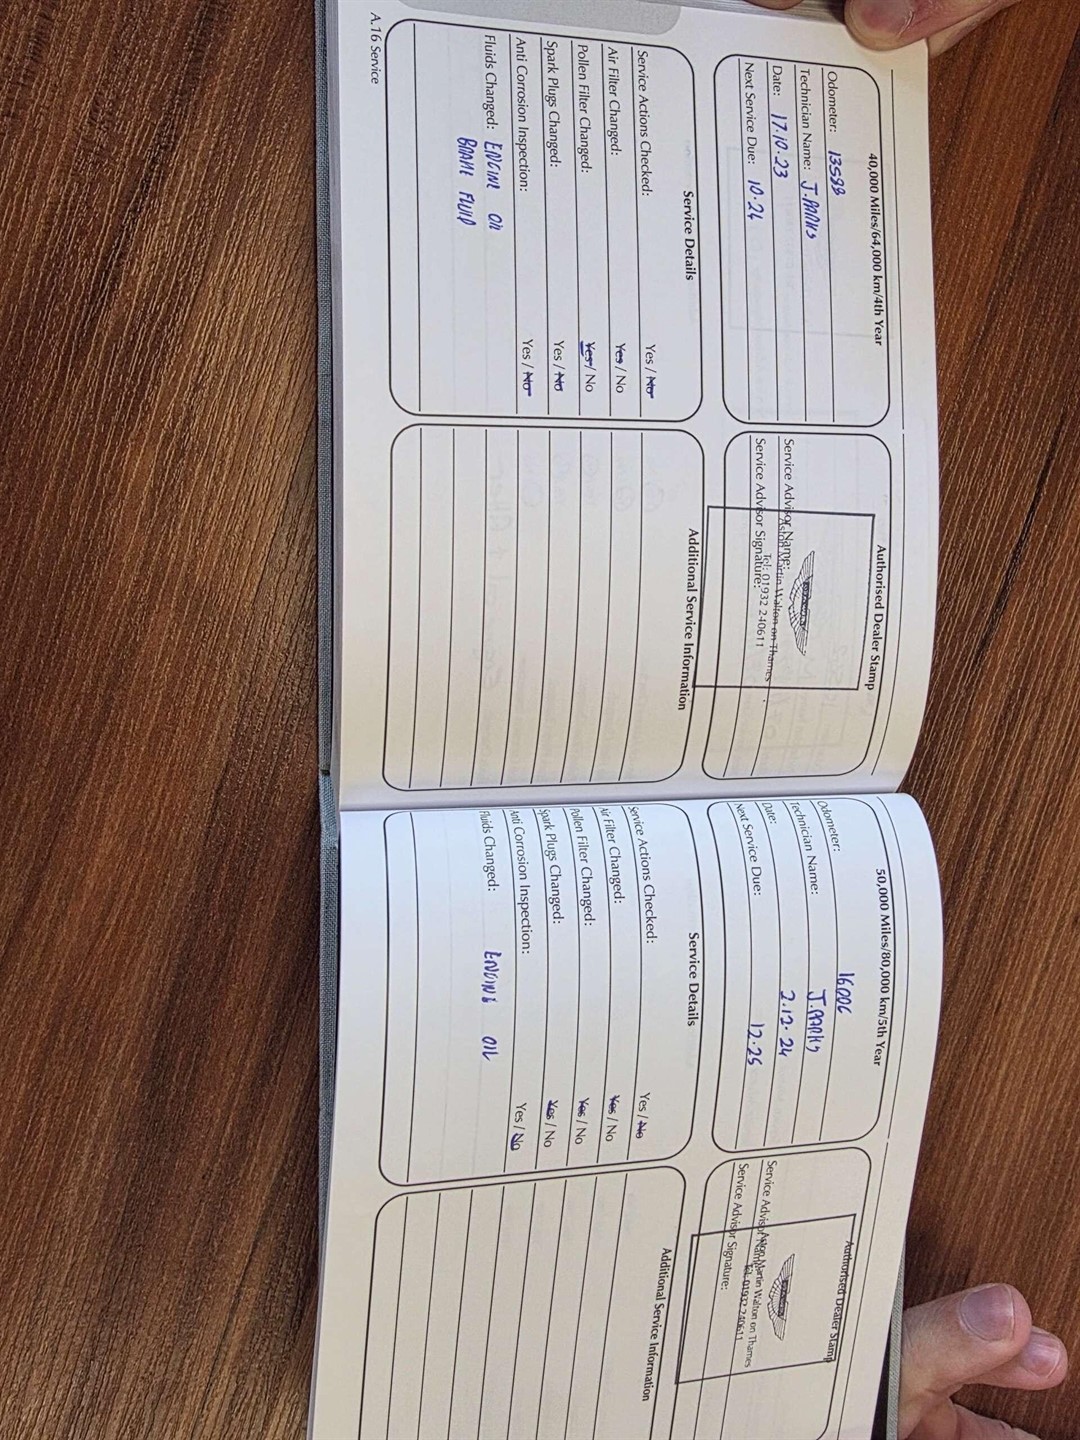 40,000 Miles/64,000 km/4th Year
Odometer: 13588
Technician Name: J.PARKS
Date: 17.10.23
Next Service Due: 10.24
Authorised Dealer Stamp
Aston Martin Walton on Thames
Tel: 01932 240611
Service Advisor Name:
Service Advisor Signature:
Service Details
Service Actions Checked: Yes / No
Air Filter Changed: Yes / No
Pollen Filter Changed: Yes / No
Spark Plugs Changed: Yes / No
Anti Corrosion Inspection: Yes / No
Fluids Changed: ENGINE OIL
BRAKE FLUID
Additional Service Information
A.16 Service
50,000 Miles/80,000 km/5th Year
Odometer: 16006
Technician Name: J.PARKS
Date: 2.12.24
Next Service Due: 12.25
Authorised Dealer Stamp
Aston Martin Walton on Thames
Tel: 01932 240611
Service Advisor Name:
Service Advisor Signature:
Service Details
Service Actions Checked: Yes / No
Air Filter Changed: Yes / No
Pollen Filter Changed: Yes / No
Spark Plugs Changed: Yes / No
Anti Corrosion Inspection: Yes / No
Fluids Changed: ENGINE OIL
Additional Service Information